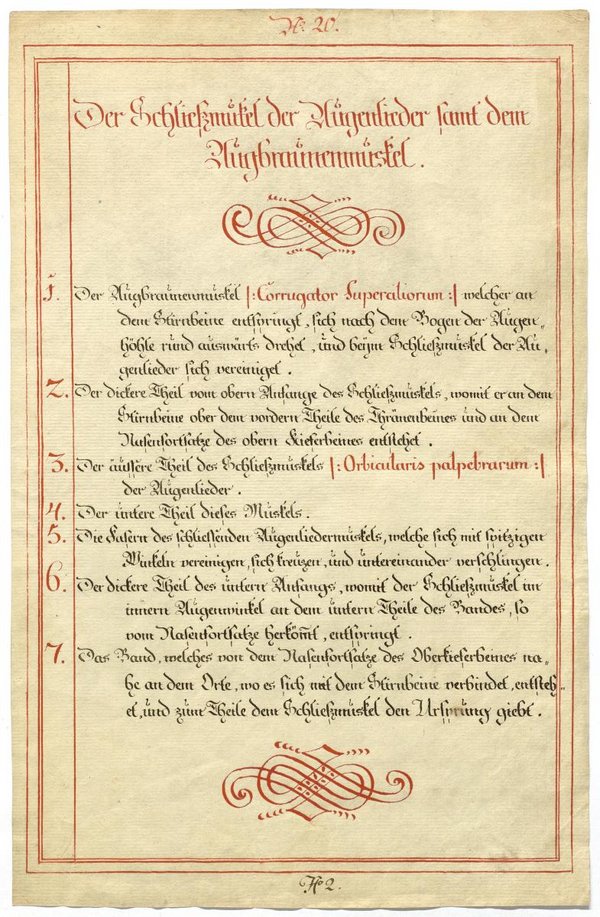 No. 20.
Der Schließmußkel der Augenlieder samt dem
Augbraunenmuskel.
1. Der Augbraunenmuskel |: Corrugator Superciliorum :| welcher an
dem Stirnbeine entspringt, sich nach dem Bogen der Augen„
höhle rund auswärts drehet, und beym Schließmuskel der Au„
genlieder sich vereiniget.
2. Der dickere Theil vom obern Anfange des Schließmuskels, womit er an dem
Stirnbeine ober dem vordern Theile des Thränenbeines und an dem
Nasenfortsatze des obern Kieferbeines entstehet.
3. Der äussere Theil des Schließmuskels |: Orbicularis palpebrarum :|
der Augenlieder.
4. Der untere Theil dieses Muskels.
5. Die Fasern des schliessenden Augenliedermuskels, welche sich mit spitzigen
Winkeln vereinigen, sich kreuzen, und untereinander verschlingen.
6. Der dickere Theil des untern Anfangs, womit der Schließmuskel im
innern Augenwinkel an dem untern Theile des Bandes, so
vom Nasenfortsatze herkom̅t, entspringt.
7. Das Band, welches von dem Nasenfortsatze des Oberkieferbeines na„
he an dem Orte, wo es sich mit dem Stirnbeine verbindet, entsteh„
et, und zum Theile dem Schließmuskel den Ursprung giebt.
No 2.